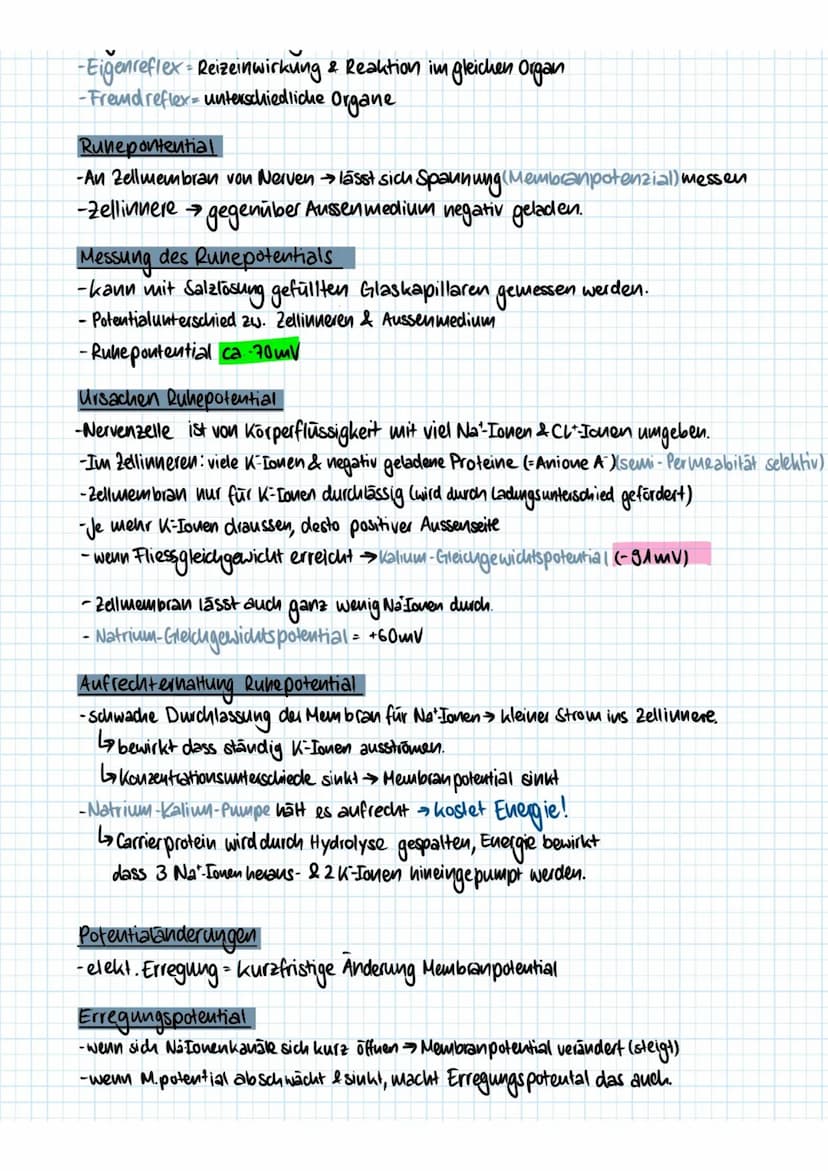 -Eigenreflex = Reizeinwirkung & Reaktion im gleichen Organ
-Fremdreflex = unterschiedliche Organe
Ruhepontential
-An Zellmembran von Nerven → lässt sich Spannung (Membranpotenzial) messen
-Zellinnere → gegenüber Aussenmedium negativ geladen.
Messung des Ruhepotentials
-kann mit Salzlösung gefüllten Glaskapillaren gemessen werden.
- Potentialunterschied zw. Zellinneren & Aussenmedium
- Ruhepontential ca -70mV
Ursachen Ruhepotential
-Nervenzelle ist von Körperflüssigkeit mit viel Na⁺-Ionen & CL⁺-Ionen umgeben.
-Im Zellinneren: viele K-Ionen & negativ geladene Proteine (=Anione A⁻) (semi-Permeabität selektiv)
-Zellmembran nur für K-Ionen durchlässig (wird durch Ladungsunterschied gefördert)
-Je mehr K-Ionen draussen, desto positiver Aussenseite
- wenn Fliessgleichgewicht erreicht → Kalium-Gleichgewichtspotential (-91mV)
- Zellmembran lässt auch ganz wenig Na⁺Ionen durch.
- Natrium-Gleichgewichtspotential = +60mV
Aufrechterhaltung Ruhepotential
-schwache Durchlassung der Membran für Na⁺-Ionen → kleiner Strom ins Zellinnere.
↳ bewirkt dass ständig K-Ionen ausströmen.
↳ Konzentrationsunterschiede sinkt → Membranpotential sinkt
-Natrium-Kalium-Pumpe hält es aufrecht → kostet Energie!
↳ Carrierprotein wird durch Hydrolyse gespalten, Energie bewirkt
dass 3 Na⁺-Ionen heraus- & 2 K-Ionen hineingepumpt werden.
Potentialänderungen
-elekt. Erregung = kurzfristige Änderung Membranpotential
Erregungspotential
-wenn sich Na⁺Ionenkanäle sich kurz öffnen → Membranpotential verändert (steigt)
-wenn M.potential abschwächt & sinkt, macht Erregungspotental das auch.